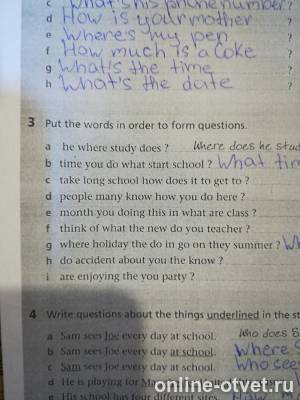 c What's his phone number ?
d How is your mother ?
e Where's my pen ?
f How much is a Coke ?
g What's the time ?
h What's the date ?
3 Put the words in order to form questions.
a he where study does ? Where does he stud
b time you do what start school ? What tim
c take long school how does it to get to ?
d people many know how you do here ?
e month you doing this in what are class ?
f think of what the new do you teacher ?
g where holiday the do in go on they summer ? Wh
h do accident about you the know ?
i are enjoying the you party ?
4 Write questions about the things underlined in the st
a Sam sees Joe every day at school. Who does S
b Sam sees Joe every day at school. Where
c Sam sees Joe every day at school. Who see
d He is playing for
e His school has four different sites.
online-otvet.ru